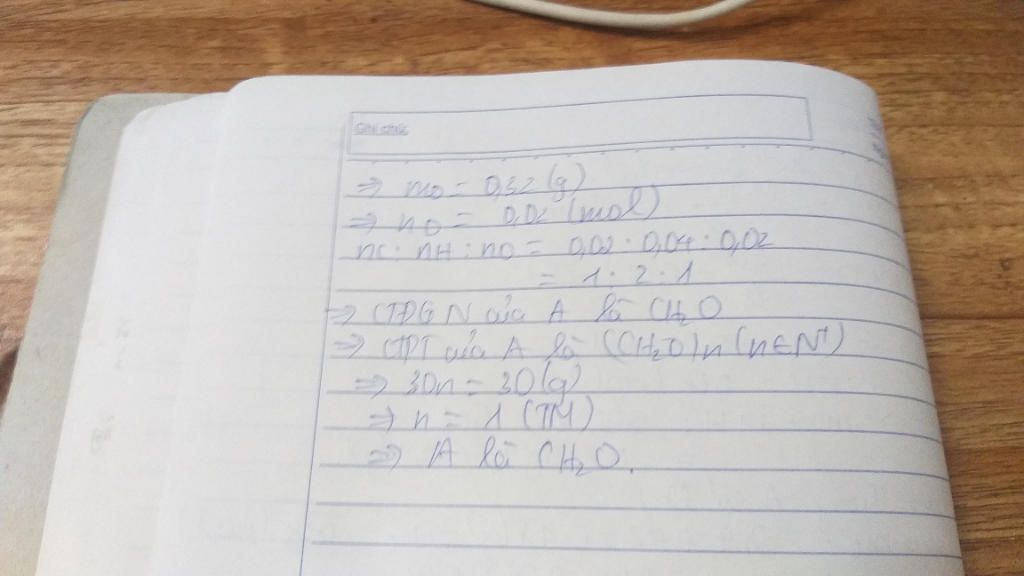 Ghi chú:
=> mO = 0,32 (g)
=> nO = 0,02 (mol)
nC : nH : nO = 0,02 : 0,04 : 0,02
= 1 : 2 : 1
=> CTĐGN của A là CH₂O
=> CTPT của A là (CH₂O)n (n∈N*)
=> 30n = 30 (g)
=> n = 1 (TM)
=> A là CH₂O.